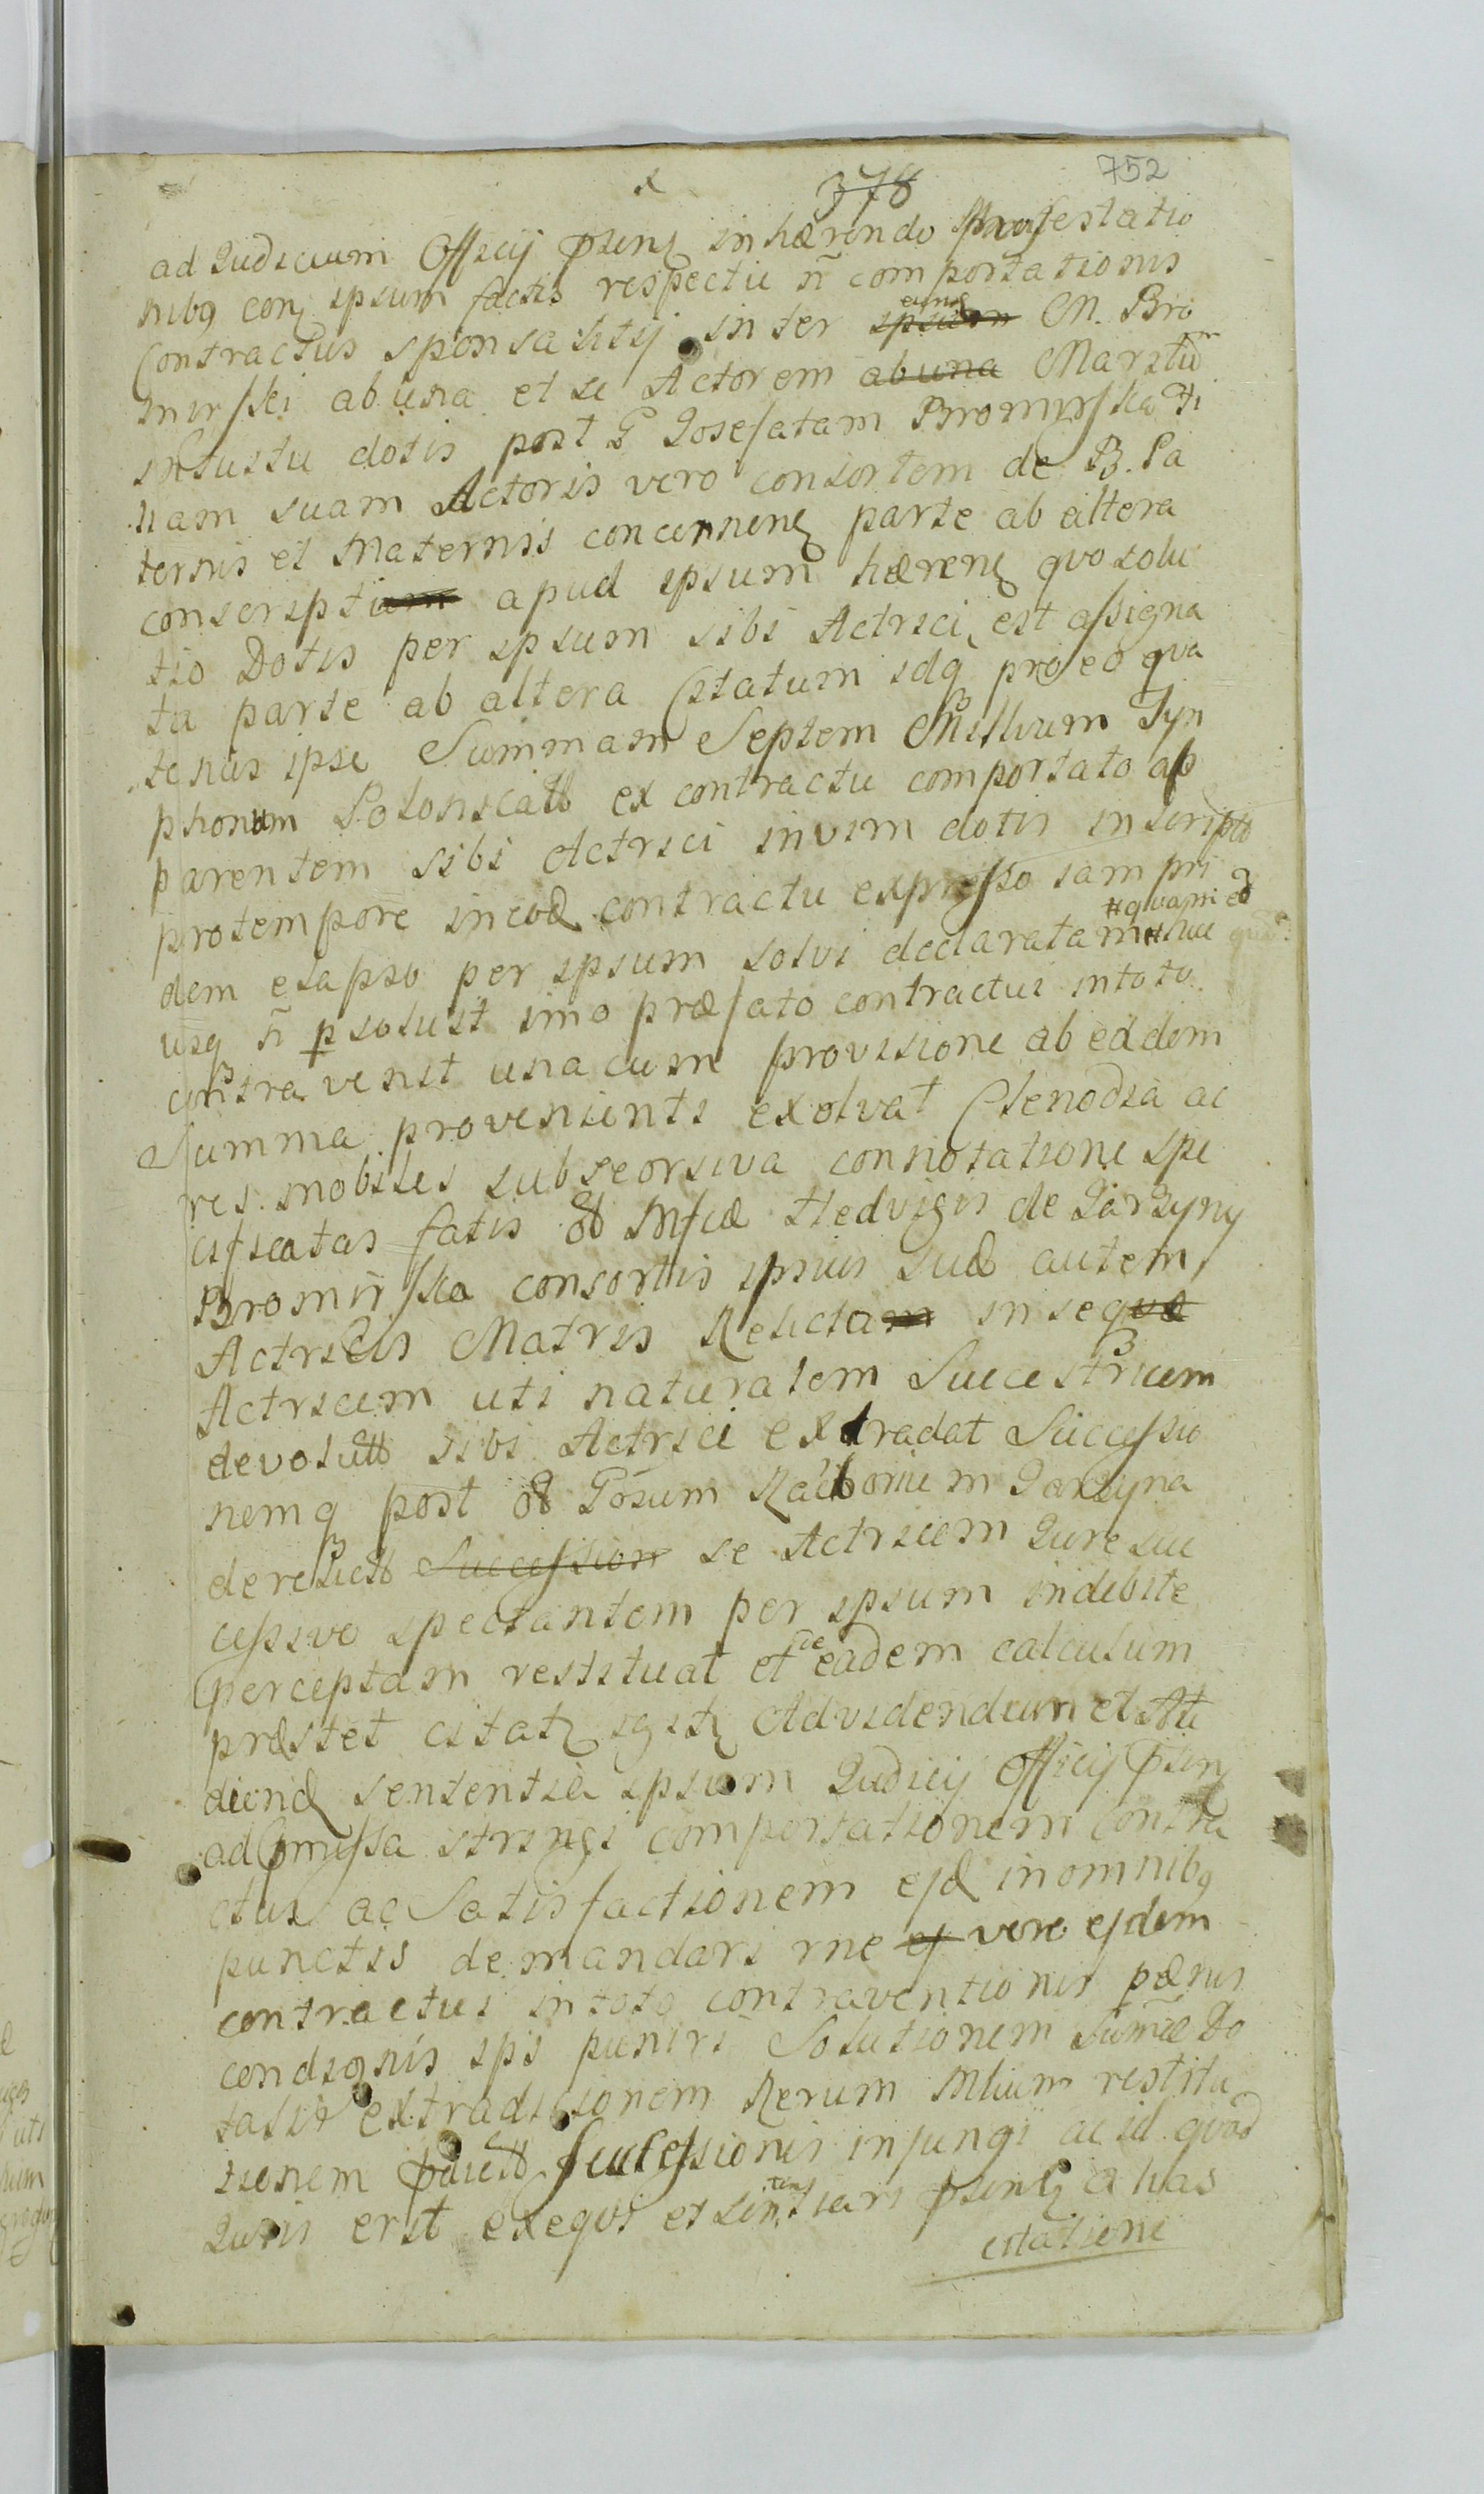 752
x 378
ad Judicium Officij pñenʒ inhærendo protestatio
nibꝫ conʒ ipsum factis respectu ñ comportationis
Contractus sponsalitij inter ipsum eundʒ M. Bro
mirski ab una et se Actorem ab una Maritum
intuitu dotis post G Josefatam Bromirska Fi
liam suam Actoris vero consortem de B. Pa
ternis et Maternis concernenʒ parte ab altera
conscriptium apud ipsum hærenʒ quo solu
tio Dotis per ipsum sibi Actrici est assigna
ta parte ab altera Citatum idqʒ pro eo qua
tenus ipse Summam Septem Millium Tyn
phonum Polonicalb ex contractu comportato ap
parentem sibi Actrici in vim dotis inscripta
pro tempore in eod contractu expresso iam pri
dem elapso per ipsum solvi declaratam # huc
# quam ed
usqʒ ñ psoluit imo præfato contractui in toto
contravenit una cum provisione ab eadem
Summa provenienti exolvat Clenodia ac
res mobiles sub seorsiva connotatione spe
cificatas fatis ol Mfcæ Hedvigis de Jarzyny
Bromirska consortis ipsius suæ autem
Actricis Matris Relictam in seque
Actricem uti naturalem Successtricem
devolutas sibi Actrici extradat Successio
nemqʒ post ol Gosum Jarzyna
derelict Succession se Actricem Jure suc
cessivo spectantem per ipsum indebite
perceptam restituat et de eadem calculum
præstet citatʒ igitʒ Ad videndum et Au
diend sententia ipsum Judicij Officij pñenʒ
ad pmissa stringi comportationem Contra
ctus ac Satisfactionem ejd in omnibꝫ
punctis demandari rne ej vero ejdem
contractui in toto contraventionis pænis
condignis ips puniri Solutionem Sum̃æ Do
talis extraditionem Rerum Mlium restitu
tionem pdict Successionis injungi ac id quod
Juris erit exequi et sententiari pñentʒ a has
citatione